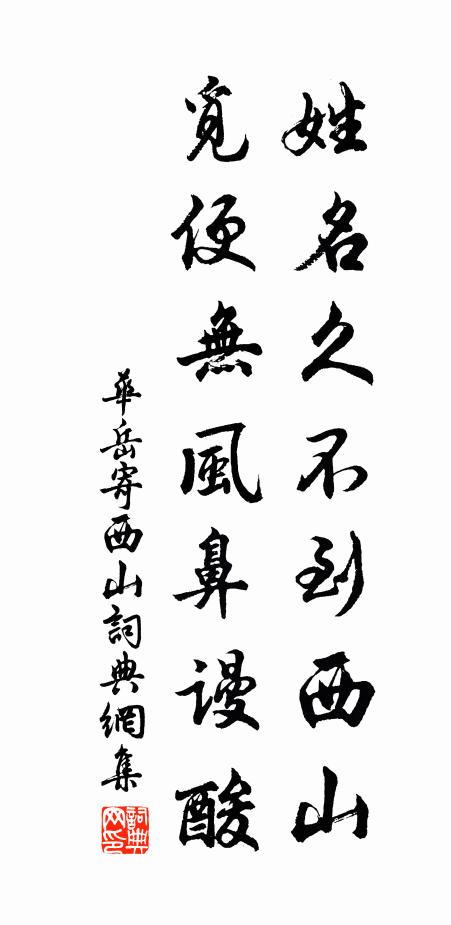 姓名久不到西山
覓便無風鼻謾酸
華岳寄西山詞典網集
詞典网印